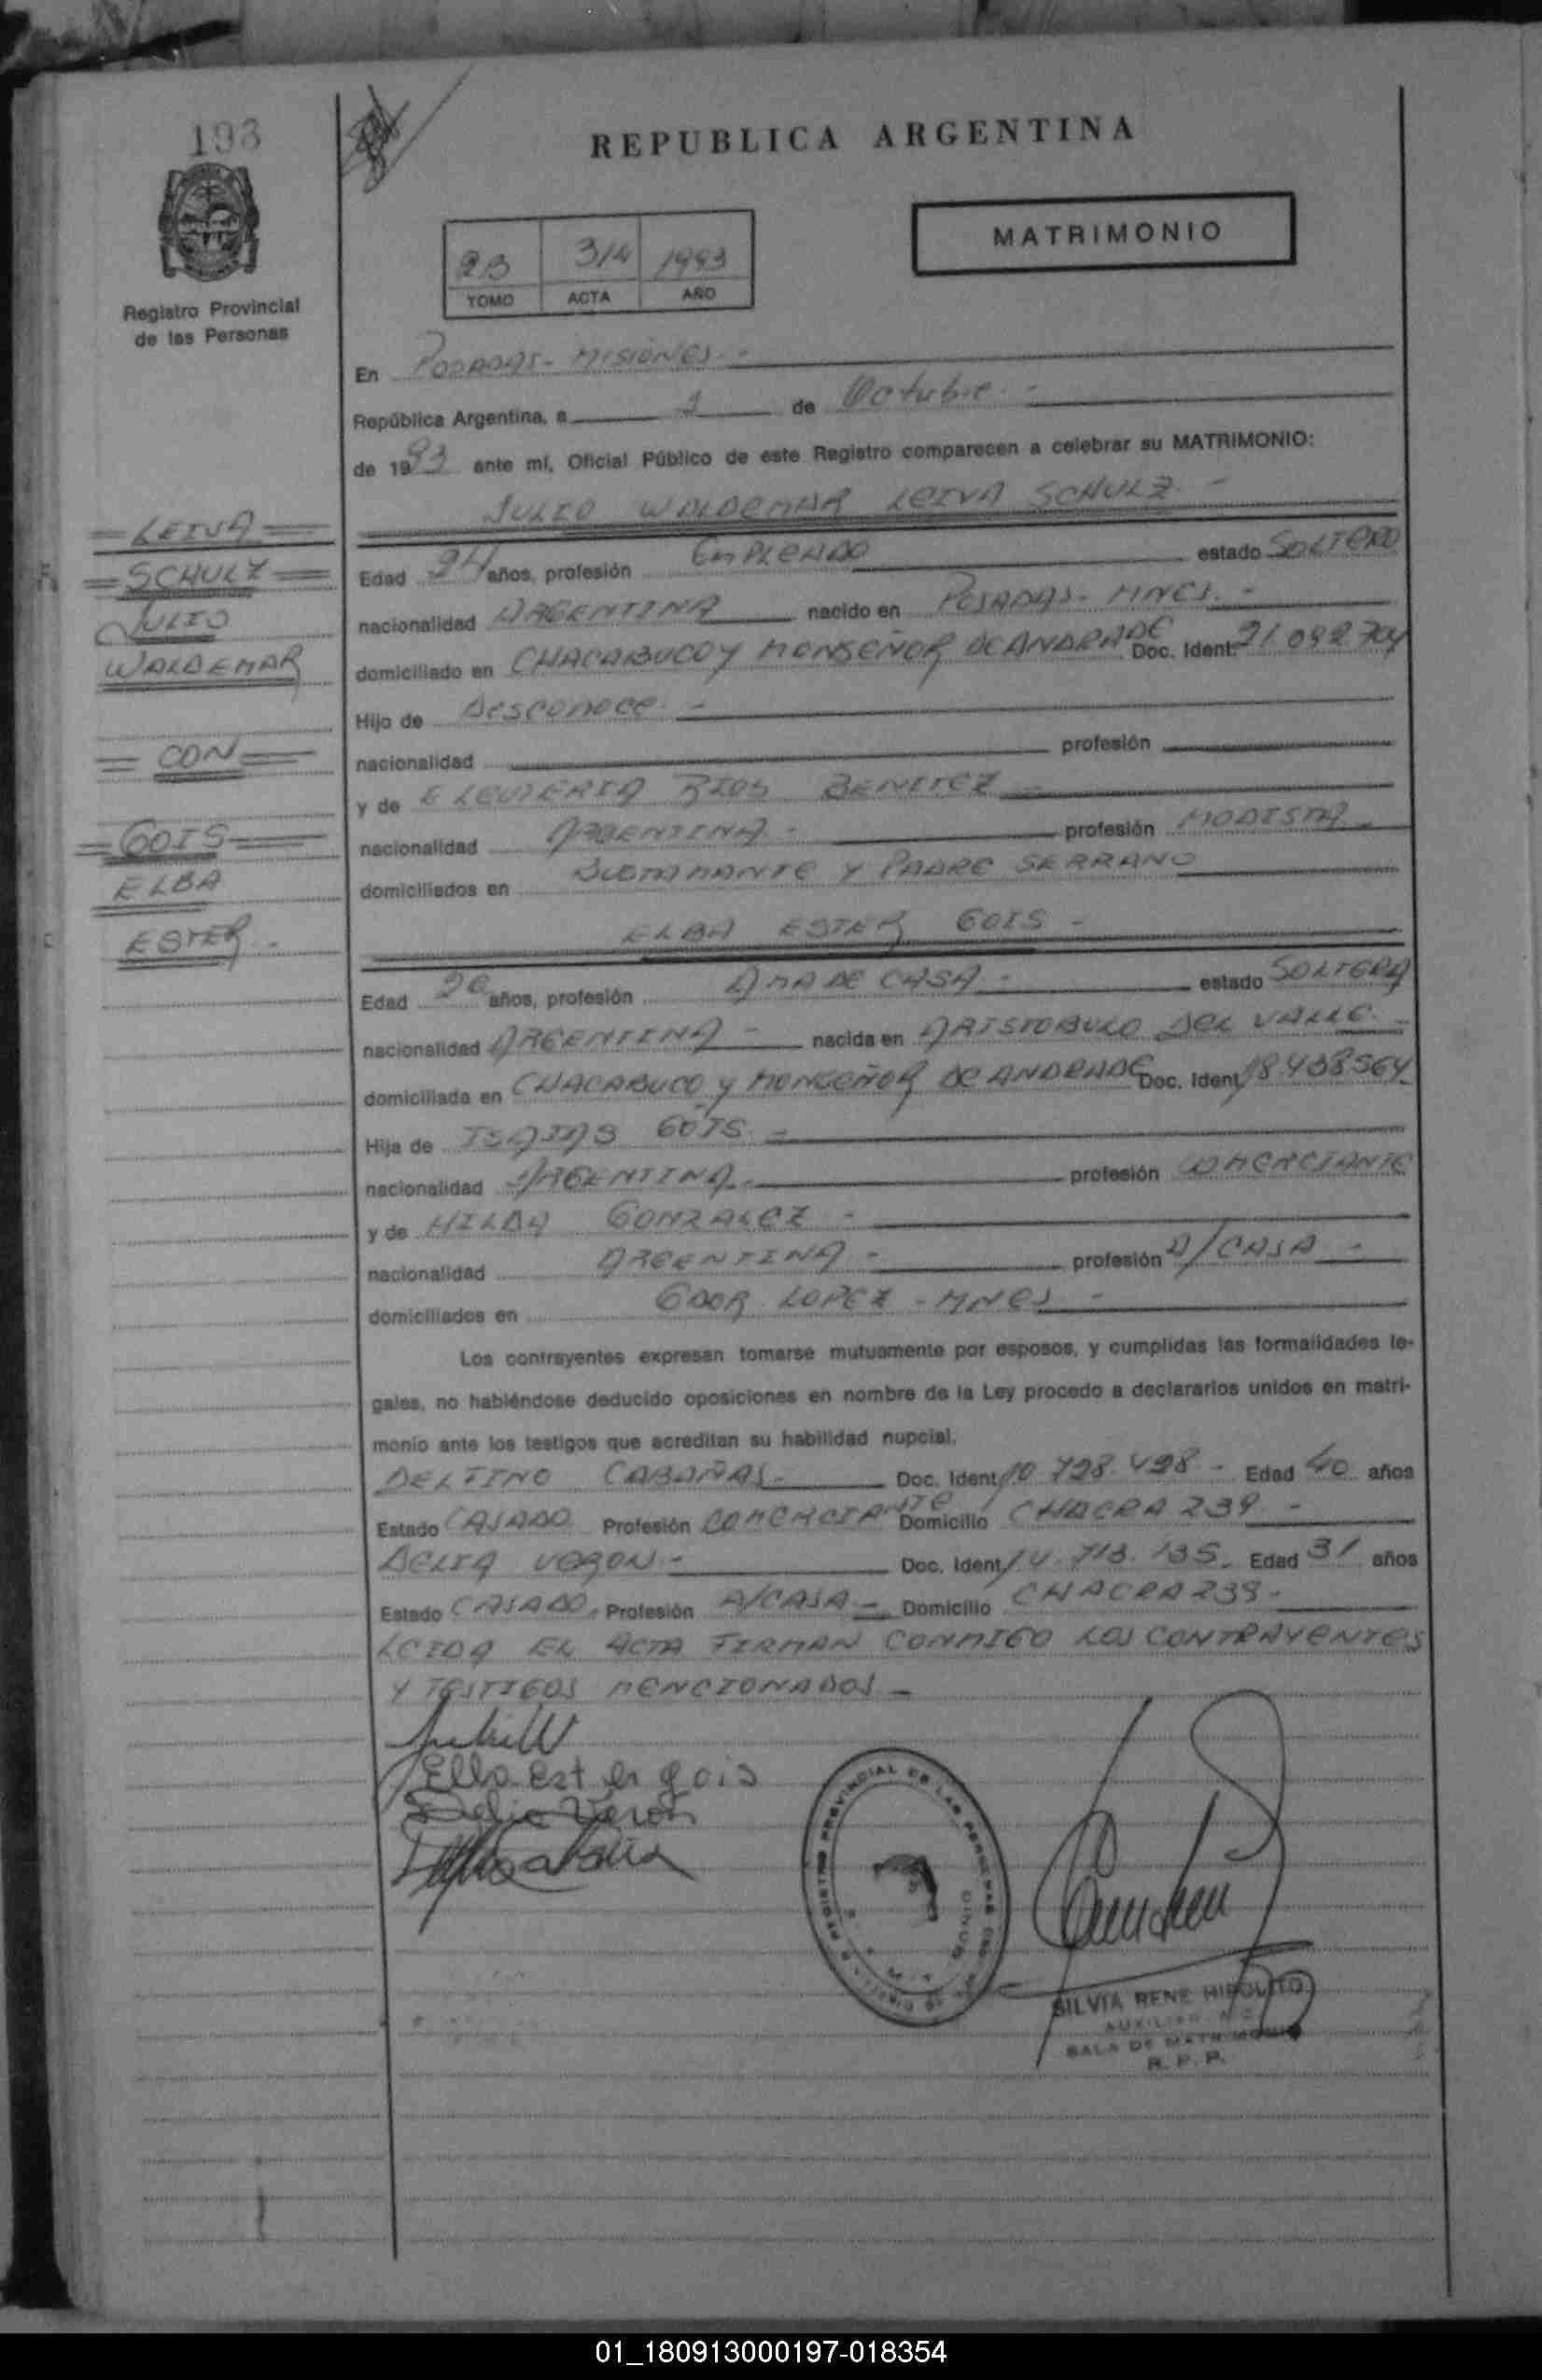 193
REPUBLICA ARGENTINA
MATRIMONIO
2B 314 1993
TOMO ACTA AÑO
Registro Provincial
de las Personas
En POSADAS - MISIONES. -
República Argentina, a 1 de Octubre. -
de 1993 ante mí, Oficial Público de este Registro comparecen a celebrar su MATRIMONIO:
JULIO WALDEMAR LEIVA SCHULZ. -
= LEIVA =
= SCHULZ =
JULIO
WALDEMAR
= CON =
= GOIS =
ELBA
ESTER. -
Edad 24 años, profesión EMPLEADO estado SOLTERO
nacionalidad ARGENTINA nacido en POSADAS - MNES. -
domiciliado en CHACABUCO Y MONSEÑOR DE ANDRADE Doc. Ident. 21.092.704
Hijo de Desconoce. -
nacionalidad profesión
y de ELEUTERIA RIOS BENITEZ -
nacionalidad ARGENTINA - profesión MODISTA
domiciliados en BUSTAMANTE Y PADRE SERRANO
ELBA ESTER GOIS -
Edad años, profesión AMA DE CASA - estado SOLTERA
nacionalidad ARGENTINA - nacida en ARISTOBULO DEL VALLE. -
domiciliada en CHACABUCO Y MONSEÑOR DE ANDRADE Doc. Ident. 18.438.564
Hija de ISAIAS GOIS -
nacionalidad ARGENTINA. profesión COMERCIANTE
y de HILDA GONZALEZ -
nacionalidad ARGENTINA - profesión A/CASA -
domiciliados en GDOR LOPEZ - MNES -
Los contrayentes expresan tomarse mutuamente por esposos, y cumplidas las formalidades le-
gales, no habiéndose deducido oposiciones en nombre de la Ley procedo a declararlos unidos en matri-
monio ante los testigos que acreditan su habilidad nupcial.
DELFINO CABAÑAS. Doc. Ident. 10.728.498 - Edad 40 años
Estado CASADO Profesión COMERCIANTE Domicilio CHACRA 239 -
DELIA VERON - Doc. Ident. 14.713.135. Edad 31 años
Estado CASADO. Profesión A/CASA - Domicilio CHACRA 239 -
LEIDA EL ACTA FIRMAN CONMIGO LOS CONTRAYENTES
Y TESTIGOS MENCIONADOS -
Elba Ester gois
Delia Veron
REGISTRO PROVINCIAL DE LAS PERSONAS
SILVIA RENE HIPOLITO
AUXILIAR
SALA DE MATRIMONIO
R. P. P.
01_180913000197-018354